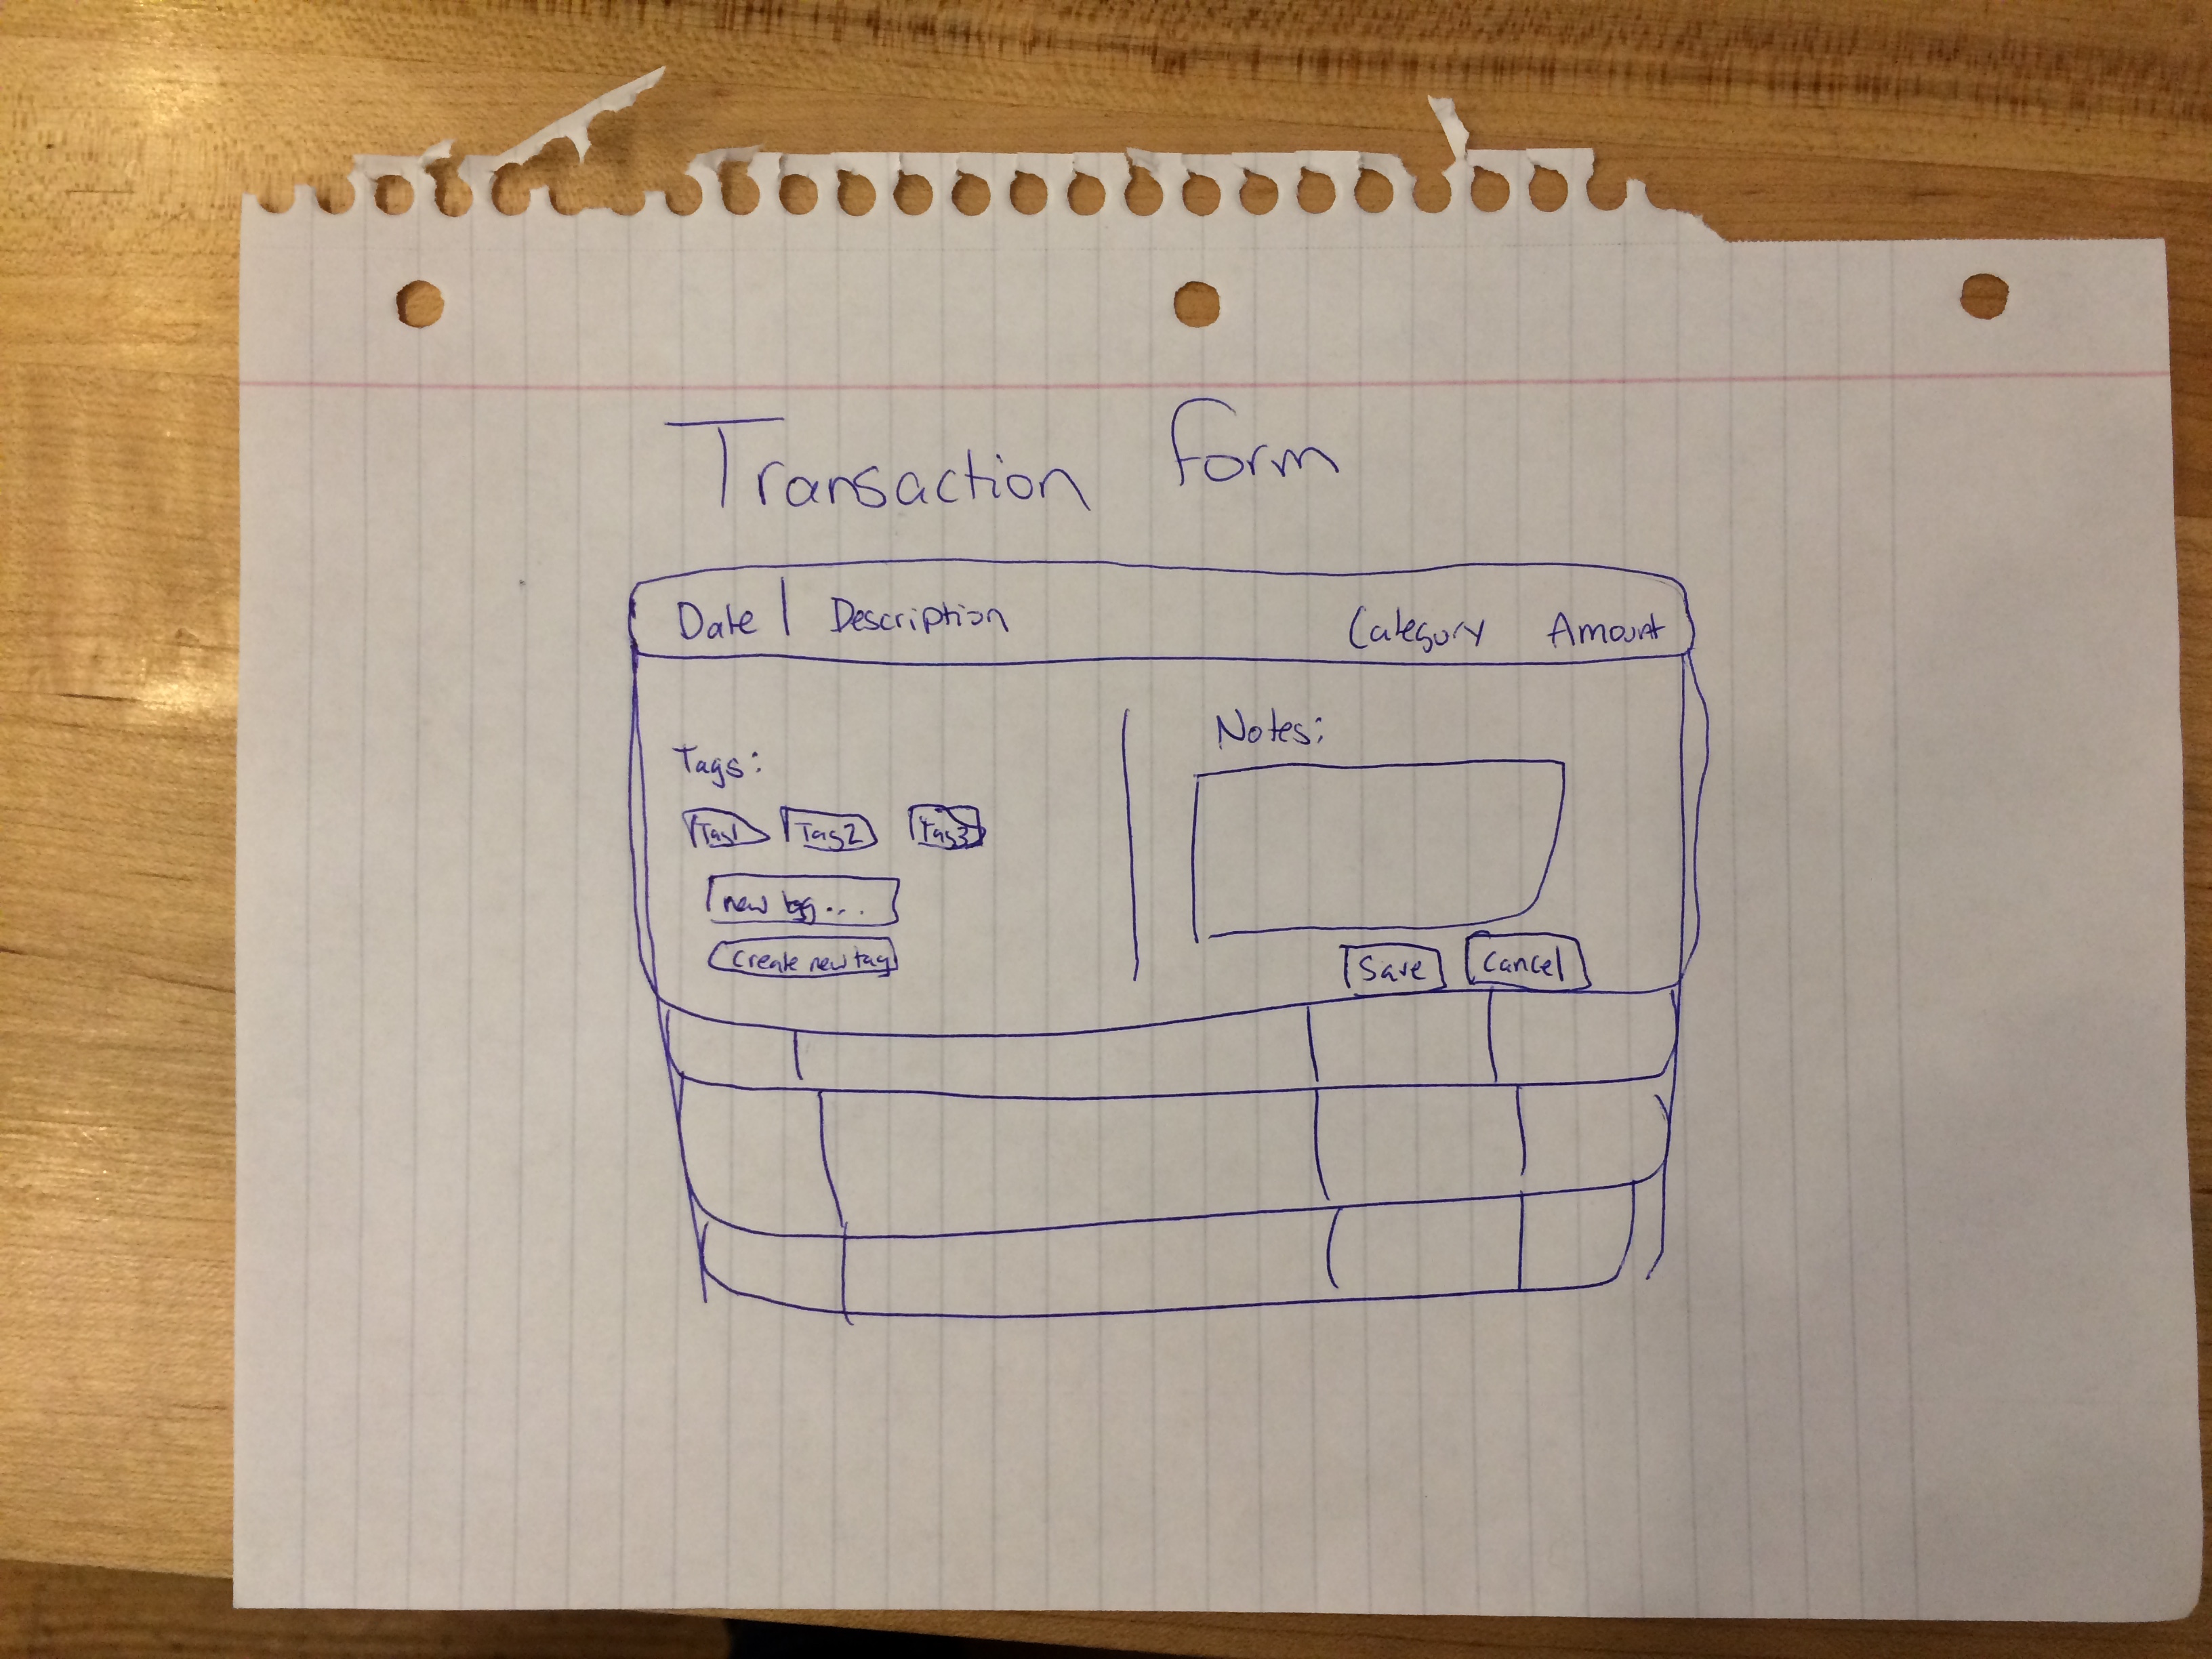 Transaction form
Date | Description Category Amount
Notes:
Tags:
Tag1 Tag2 tag3
new tag...
create new tag
Save cancel